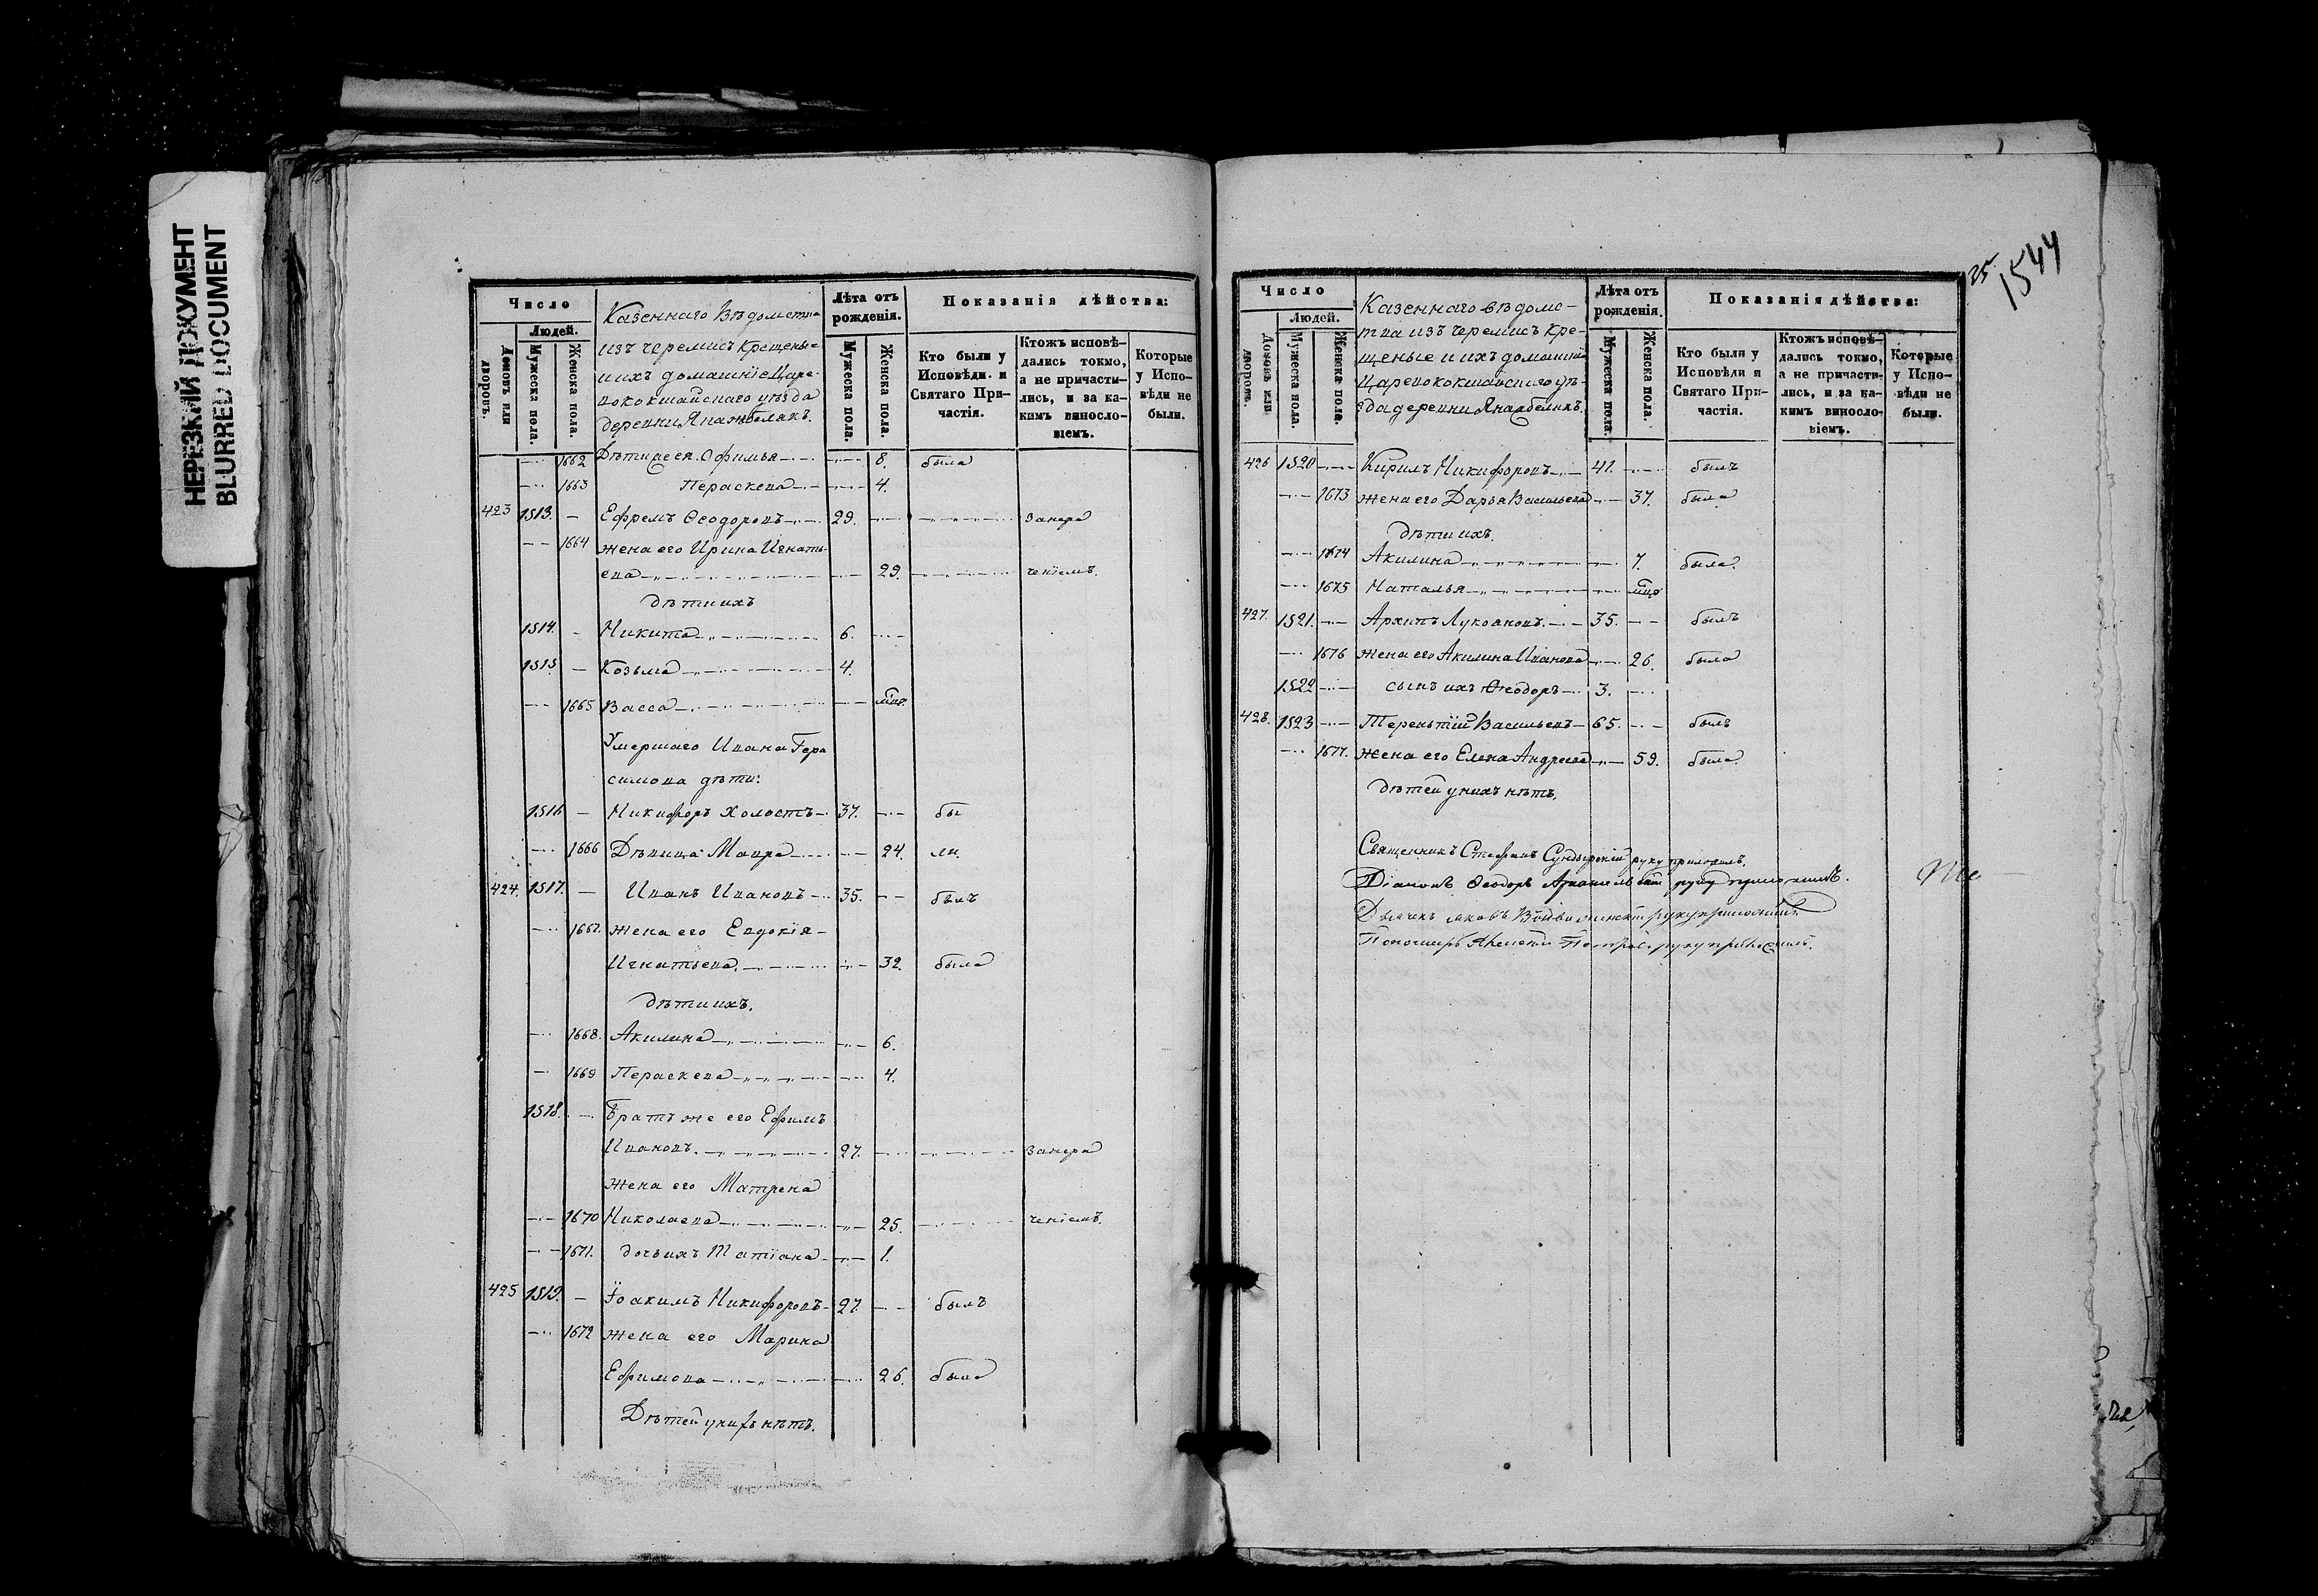 НЕРЕЗКИЙ ДОКУМЕНТ
BLURRED DOCUMENT
Число
Людей.
Домовъ или дворовъ.
Мужеска пола.
Женска пола.
Казеннаго Вѣдомства
изъ черемисъ крещены-
и ихъ домашніе Царе-
вококшайскаго уѣзда
деревни
Лѣта отъ рожденія.
Мужеска пола.
Женска пола.
Показанія дѣйства:
Кто были у Исповѣди и Святаго Причастія.
Ктожъ исповѣ-дались токмо, а не причасти-лись, и за ка-кимъ винословіемъ.
Которые у Испо-вѣди не были.
1662 Офимья 8. была
1663 Параскева 4.
423 1513. Ефремъ Ѳеодоровъ 29. Занере
1664 жена его Ирина Игнать-
ева 29. ченіемъ.
дѣти ихъ
1514. Никита 6.
1515. Козьма 4.
1665 Васса
Умершаго Ивана Гера
симова дѣти:
1516 Никифоръ холостъ 37. бы
1666 Дѣвица Мавра 24. ли.
424. 1517. Иванъ Ивановъ 35. былъ
1667. жена его Евдокія
Игнатьева 32. была
дѣти ихъ.
1668. Акилина 6.
1669 Параскева 4.
1518. Братъ же его Ефимъ
Ивановъ. 27. Занере
жена его Матрена
1670 Николаева 25. ченіемъ.
1671. дочь ихъ Татіана 1.
425 1519. Іоакимъ Никифоровъ 27. былъ
1672 жена его Марина
Ефимова 26. была
Дѣтей у нихъ нѣтъ.
25.
1544
Число
Людей.
Домовъ или дворовъ.
Мужеска пола.
Женска пола.
Казеннаго вѣдомс-
тва изъ черемисъ кре-
щеные и ихъ домашніе
Царевококшайскаго уѣ-
зда деревни
Лѣта отъ рожденія.
Мужеска пола.
Женска пола.
Показанія дѣйства:
Кто были у Исповѣди и Святаго Причастія.
Ктожъ исповѣ-дались токмо, а не причасти-лись, и за ка-кимъ винословіемъ.
Которые у Испо-вѣди не были.
426 1520 Кирилъ Никифоровъ 41. былъ
1673 жена его Дарья Васильева 37. была
дѣти ихъ.
1674 Акилина 7. была.
1675 Наталья
427. 1521. Архипъ Лукоановъ. 35. былъ
1676 жена его Акилина Иванова 26. была
1522 сынъ ихъ Ѳеодоръ 3.
428. 1523 Терентій Васильевъ 65. былъ
1677. жена его Елена Андреева 59. была.
дѣтей у нихъ нѣтъ.
Священникъ Стефанъ Сундырскій руку приложилъ.
Діаконъ Ѳеодоръ руку приложилъ.
Дьячекъ Яковъ руку приложилъ.
Пономарь Алексѣй Петровъ руку приложилъ.